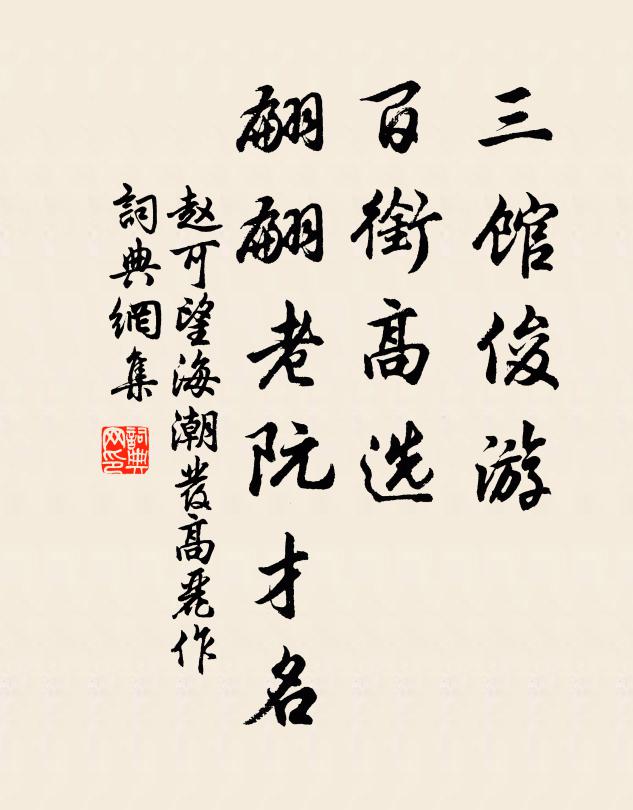 三馆俊游
百衔高选
翩翩老阮才名
赵可望海潮發高麗作
詞典網集
詞典网印